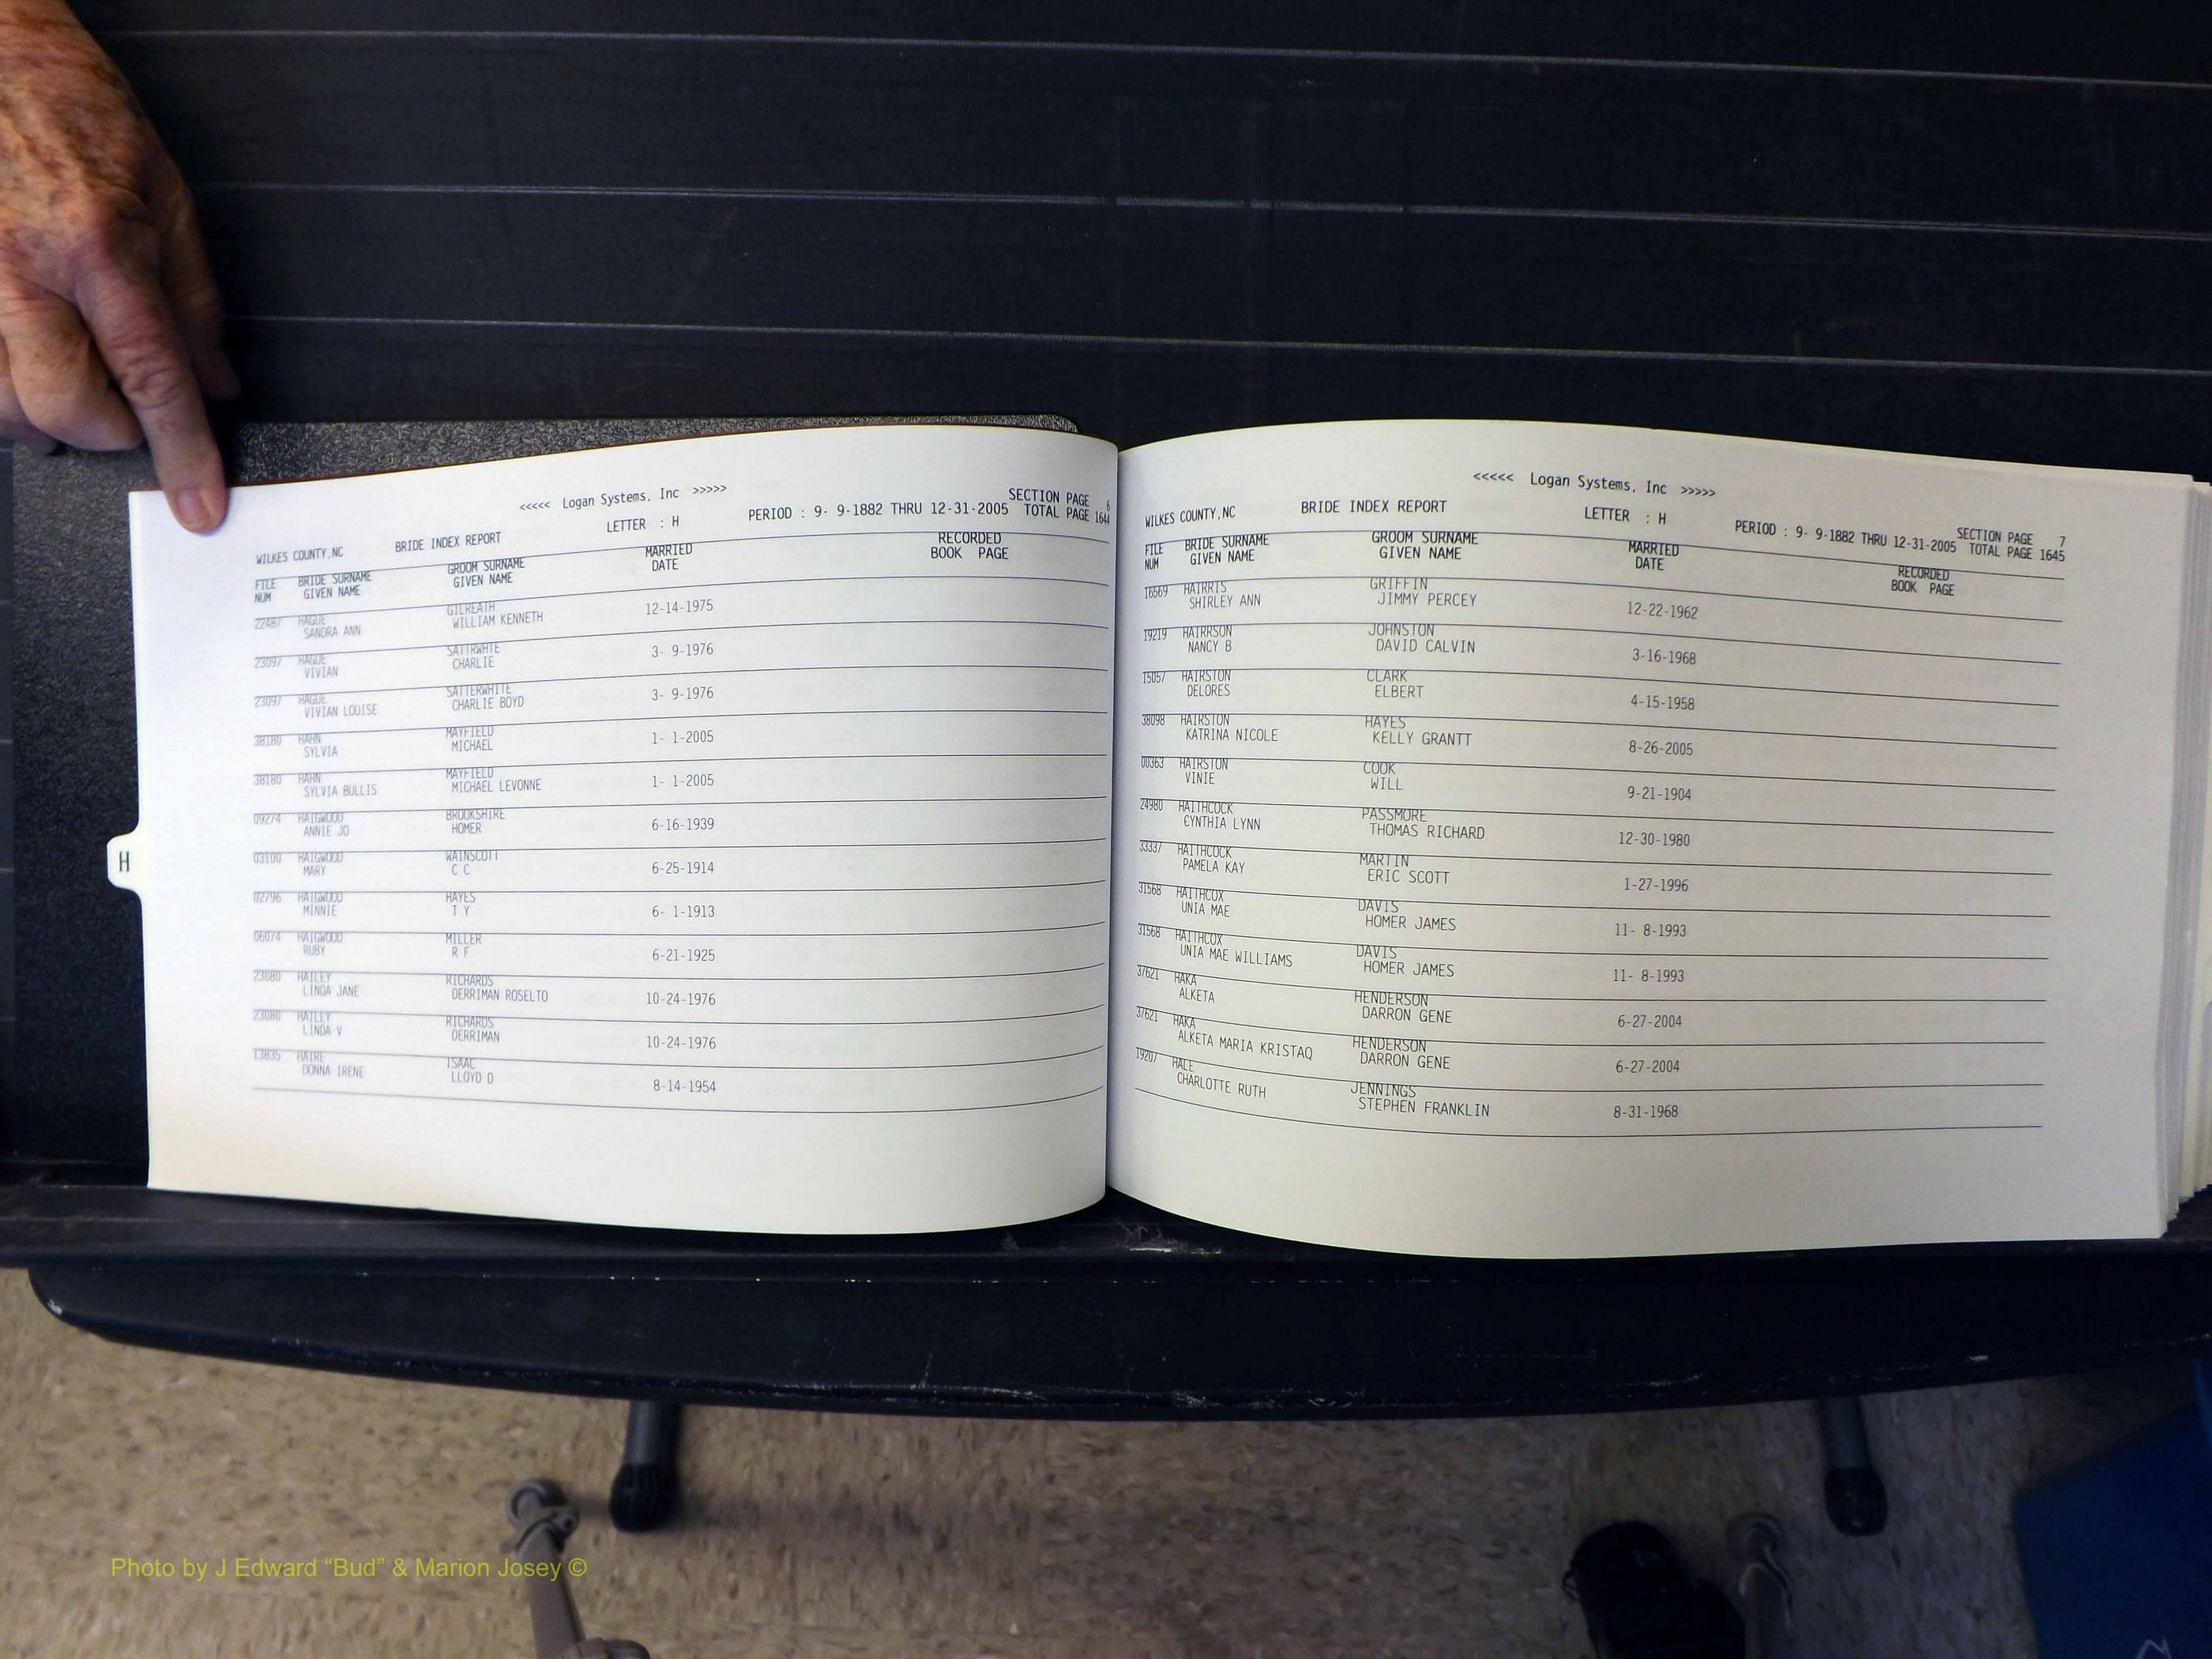 <<<<< Logan Systems, Inc >>>>>
SECTION PAGE 6
WILKES COUNTY,NC BRIDE INDEX REPORT LETTER : H PERIOD : 9- 9-1882 THRU 12-31-2005 TOTAL PAGE 1644
FILE BRIDE SURNAME GROOM SURNAME MARRIED RECORDED
NUM GIVEN NAME GIVEN NAME DATE BOOK PAGE
22487 HAGUE GILREATH
SANDRA ANN WILLIAM KENNETH 12-14-1975
23097 HAGUE SATTRWHTE
VIVIAN CHARLIE 3- 9-1976
23097 HAGUE SATTERWHITE
VIVIAN LOUISE CHARLIE BOYD 3- 9-1976
38180 HAHN MAYFIELD
SYLVIA MICHAEL 1- 1-2005
38180 HAHN MAYFIELD
SYLVIA BULLIS MICHAEL LEVONNE 1- 1-2005
09274 HAIGWOOD BROOKSHIRE
ANNIE JO HOMER 6-16-1939
03100 HAIGWOOD WAINSCOTT
MARY C C 6-25-1914
02796 HAIGWOOD HAYES
MINNIE T Y 6- 1-1913
06074 HAIGWOOD MILLER
RUBY R F 6-21-1925
23080 HAILEY RICHARDS
LINDA JANE DERRIMAN ROSELTO 10-24-1976
23080 HAILEY RICHARDS
LINDA V DERRIMAN 10-24-1976
13835 HAIRE ISAAC
DONNA IRENE LLOYD D 8-14-1954
H
<<<<< Logan Systems, Inc >>>>>
SECTION PAGE 7
WILKES COUNTY,NC BRIDE INDEX REPORT LETTER : H PERIOD : 9- 9-1882 THRU 12-31-2005 TOTAL PAGE 1645
FILE BRIDE SURNAME GROOM SURNAME MARRIED RECORDED
NUM GIVEN NAME GIVEN NAME DATE BOOK PAGE
16569 HAIRRIS GRIFFIN
SHIRLEY ANN JIMMY PERCEY 12-22-1962
19219 HAIRRSON JOHNSTON
NANCY B DAVID CALVIN 3-16-1968
15057 HAIRSTON CLARK
DELORES ELBERT 4-15-1958
38098 HAIRSTON HAYES
KATRINA NICOLE KELLY GRANTT 8-26-2005
00363 HAIRSTON COOK
VINIE WILL 9-21-1904
24980 HAITHCOCK PASSMORE
CYNTHIA LYNN THOMAS RICHARD 12-30-1980
33337 HAITHCOCK MARTIN
PAMELA KAY ERIC SCOTT 1-27-1996
31568 HAITHCOX DAVIS
UNIA MAE HOMER JAMES 11- 8-1993
31568 HAITHCOX DAVIS
UNIA MAE WILLIAMS HOMER JAMES 11- 8-1993
37621 HAKA HENDERSON
ALKETA DARRON GENE 6-27-2004
37621 HAKA HENDERSON
ALKETA MARIA KRISTAQ DARRON GENE 6-27-2004
19207 HALE JENNINGS
CHARLOTTE RUTH STEPHEN FRANKLIN 8-31-1968
Photo by J Edward “Bud” & Marion Josey ©